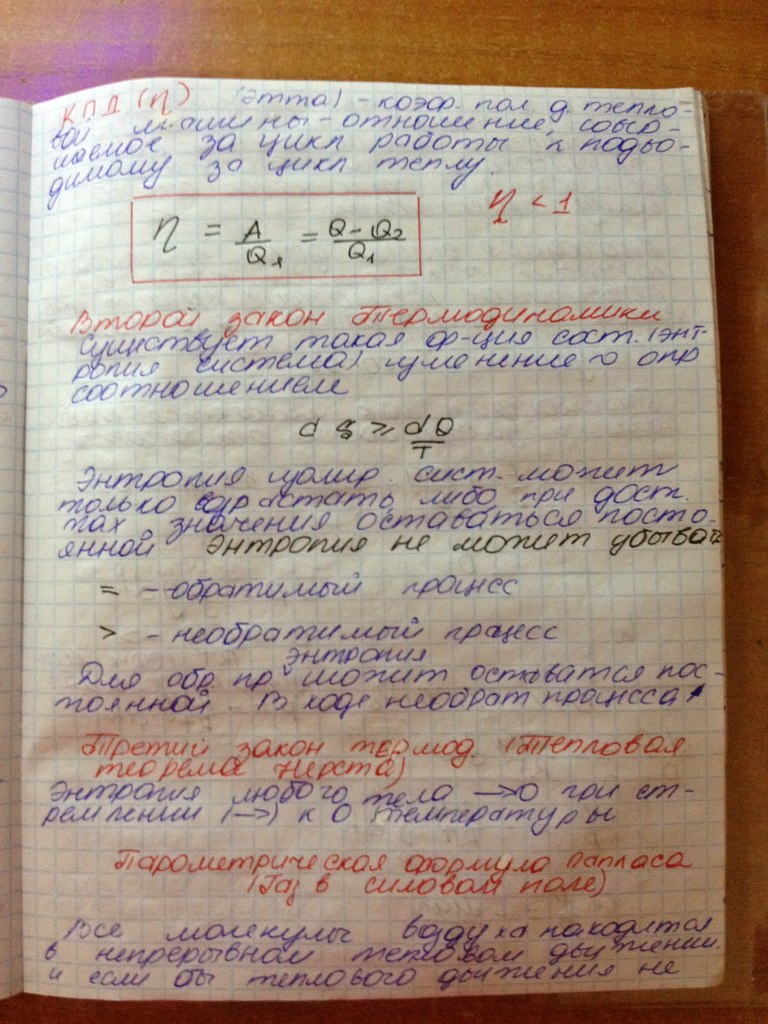 КПД (η) (этта) - коэф. пол. д. тепло-
вой машины - отношение, совер-
шаемое за цикл работы к подво-
димому за цикл теплу.
η < 1
η = A/Q₁ = Q - Q₂/Q₁
Второй закон Термодинамики
Существует такая ф-ция сост. (энт-
ропия система) опр
соотношением
d S ≥ dQ/T
Энтропия сист. может
только либо при дост.
значения оставаться посто-
янной Энтропия не может убывать
= - обратимый процесс
> - необратимый процесс
энтропия
Для обр. пр. может оставатся пос-
тоянной В ходе необрат процесса ↑
Третий закон термод. (Тепловая
теорема Нерста)
Энтропия любого тела → 0 при ст-
ремлении (→) к 0 температуры
Парометрическая формула Лапласа
(Газ в силовом поле)
Все молекулы воздуха находятся
в непрерывном тепловом движении
и если бы теплового движения не